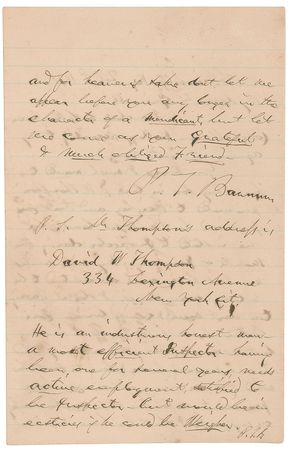 and for heavens sake dont let me
appear before you any longer in the
character of a mendicant, but let
me come as your grateful
& much obliged friend.
P. T. Barnum
P. S. Mr Thompson's address is
David W Thompson
334 Lexington Avenue
New York City
He is an industrious honest man
a most efficient Inspector having
been one for several years, needs
active employment, satisfied to
be Inspector – but would be in
ecstacies if he could be Weigher.